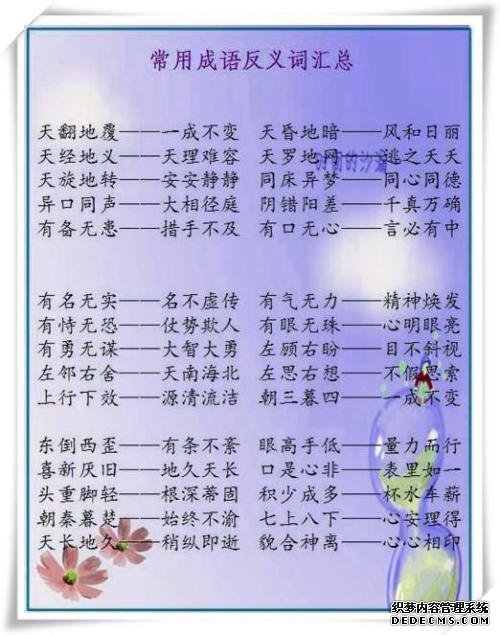 常用成语反义词汇总
天翻地覆——一成不变 天昏地暗——风和日丽
天经地义——天理难容 天罗地网——逃之夭夭
天旋地转——安安静静 同床异梦——同心同德
异口同声——大相径庭 阴错阳差——千真万确
有备无患——措手不及 有口无心——言必有中
有名无实——名不虚传 有气无力——精神焕发
有恃无恐——仗势欺人 有眼无珠——心明眼亮
有勇无谋——大智大勇 左顾右盼——目不斜视
左邻右舍——天南海北 左思右想——不假思索
上行下效——源清流洁 朝三暮四——一成不变
东倒西歪——有条不紊 眼高手低——量力而行
喜新厌旧——地久天长 口是心非——表里如一
头重脚轻——根深蒂固 积少成多——杯水车薪
朝秦暮楚——始终不渝 七上八下——心安理得
天长地久——稍纵即逝 貌合神离——心心相印
织梦内容管理系统
DEDECMS.COM